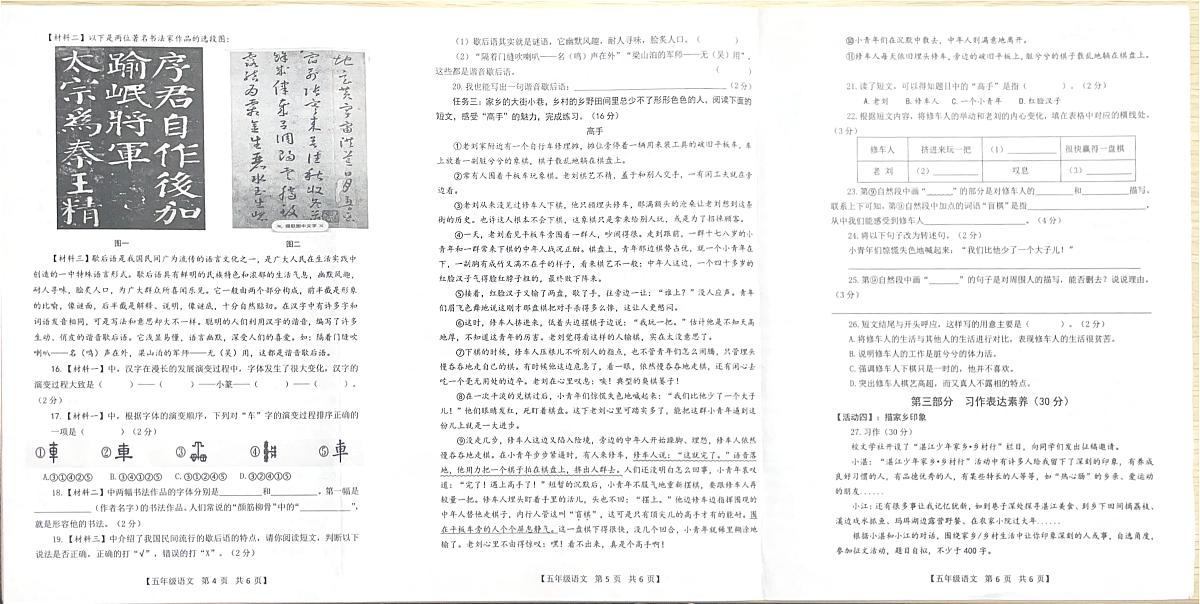 【材料二】以下是两位著名书法家作品的选段图:
序君自作後加
踰岷將軍
太宗爲秦王精
图一
图二
【材料三】歇后语是我国民间广为流传的语言文化之一，是广大人民在生活实践中
创造的一中特殊语言形式。歇后语具有鲜明的民族特色和浓郁的生活气息，幽默风趣，
耐人寻味，脍炙人口，为广大群众所喜闻乐见。它一般由两个部分构成，前半截是形象
的比喻，像谜面，后半截是解释、说明，像谜底，十分自然贴切。在汉字中有许多字和
词语发音相同，可是写法和意思却大不一样。聪明的人们利用汉字的谐音，编写了许多
生动、俏皮的谐音歇后语。它浅显易懂，语言幽默，深受人们的喜爱。如：隔着门缝吹
喇叭——名（鸣）声在外，梁山泊的军师——无（吴）用，这都是谐音歇后语。
16.【材料一】中，汉字在漫长的发展演变过程中，字体发生了很大变化，汉字的
演变过程大致是（ ）——（ ）——小篆——（ ）——（ ）。
（2分）
17.【材料一】中，根据字体的演变顺序，下列对“车”字的演变过程排序正确的
一项是（ ）（2分）
① ② ③ ④ ⑤
A.③①④②⑤ B.③④①②⑤ C.③①②④⑤ D.③②④①⑤
18.【材料二】中两幅书法作品的字体分别是 和 。第一幅是
（作者名字）的书法作品。人们常说的“颜筋柳骨”中的“ ”，
就是形容他的书法。（2分）
19.【材料三】中介绍了我国民间流行的歇后语的特点，请你阅读短文，判断以下
说法是否正确，正确的打“√”，错误的打“X”。（2分）
【五年级语文 第4页 共6页】
（1）歇后语其实就是谜语，它幽默风趣，耐人寻味，脍炙人口。（ ）
（2）“隔着门缝吹喇叭——名（鸣）声在外”“梁山泊的军师——无（吴）用”，
这些都是谐音歇后语。（ ）
20.我也能写出一句谐音歇后语： （2分）
任务三：家乡的大街小巷，乡村的乡野田间里总少不了形形色色的人，阅读下面的
短文，感受“高手”的魅力，完成练习。（16分）
高手
①老刘家附近有一个自行车修理摊，摊位旁停着一辆用来装工具的破旧平板车，车
上放着一副脏兮兮的象棋，棋子散乱地躺在棋盘上。
②常有人围着平板车玩象棋。老刘棋艺不精，羞于和别人交手，一有闲工夫就在旁
边看。
③老刘从未没见过修车人下棋，他只顾埋头修车，那满额头的沧桑让老刘想到这条
街的历史。也许这人根本不会下棋，这象棋只是拿来给别人玩，或是为了招徕顾客。
④一天，老刘看见平板车旁围着一群人，吵闹得很。走到跟前，一群十七八岁的小
青年和一群常来下棋的中年人战况正酣。棋盘上，青年那边棋势占优，就一个小青年在
下，一副胸有成竹又满不在乎的样子，看来棋艺不一般；中年人这边，一个四十多岁的
红脸汉子气得脸红脖子粗的，最终败下阵来。
⑤接着，红脸汉子又输了两盘，歇了手，往旁边一让：“谁上？”没人应声。青年
们眉飞色舞地说这刚才那盘棋把对手杀得多么惨，这让人更憋闷。
⑥这时，修车人挤进来，低着头边摆棋子边说：“我玩一把。”估计他是不知天高
地厚，不知道这青年的厉害。老刘觉得着这样的人输棋，实在太没意思了。
⑦下棋的时候，修车人压根儿不听别人的指点，也不管青年们怎么闹腾，只管埋头
慢吞吞地走自己的棋。有时候他这边危急了，看一眼，依然慢吞吞地走棋，还有闲心去
吃一个毫无用处的边卒。老刘在心里叹息：唉！典型的臭棋篓子！
⑧在一次平淡的兑棋过后，小青年们惊慌失色地喊起来：“我们比他少了一个大子
儿！”他们眼睛发红，死盯着棋盘。这下老刘心里可踏实多了，能把这群小青年逼到这
份儿上就是一大进步。
⑨没走几步，修车人这边又陷入险境，旁边的中年人开始躁脚、埋怨，修车人依然
慢吞吞地走棋。在小青年步步紧逼时，有人来修车，修车人说：“这就完了。”语音落
地，他用力把一个棋子拍在棋盘上，挤出人群去。人们还没明白怎么回事，小青年哀叹
道：“完了！遇上高手了！”短暂的沉默后，小青年不服气地重新摆棋，要跟修车人再
较量一把。修车人埋头盯着手里的活儿，头也不回：“摆上。”他边修车边指挥围观的
中年人替他走棋子，内行人管这叫“盲棋”，这可是只有顶尖儿的高手才有的能耐。围
在平板车旁的人个个屏息静气。这一盘棋下得很快，没几个回合，小青年就稀里糊涂地
输了。老刘心里不由得惊叹：嘿！看不出来，真是个高手啊！
【五年级语文 第5页 共6页】
⑩小青年们在沉默中散去，中年人则满意地离开。
⑪修车人每天依旧埋头修车，旁边的破旧平板上，脏兮兮的棋子散乱地躺在棋盘上。
21.读了短文，可以得知题目中的“高手”是指（ ）。（2分）
A.老刘 B.修车人 C.一个小青年 D.红脸汉子
22.根据短文内容，将修车人的举动和老刘的内心变化，填在表格中对应的横线处。
（3分）
修车人 挤进来玩一把 （1） 很快赢得一盘棋
老 刘 （2） 叹息 （3）
23.第⑨自然段中画“ ”的部分是对修车人的 和 描写。
联系上下可知，第⑨自然段中加点的词语“盲棋”是指 。
从中我们能感受到修车人 。（4分）
24.将以下句子改为转述句。（2分）
小青年们惊慌失色地喊起来：“我们比他少了一个大子儿！”
25.第⑨自然段中画“ ”的句子是对周围人的描写，能否删去？说说理由。
（3分）
26.短文结尾与开头呼应，这样写的用意主要是（ ）。（2分）
A.将修车人的生活与其他人的生活进行对比，表现修车人生活很贫苦。
B.说明修车人的工作是脏兮兮的体力活。
C.强调修车人下棋只是一时的，他并不喜欢。
D.突出修车人棋艺高超，而又真人不露相的特点。
第三部分 习作表达素养（30分）
【活动四】：描家乡印象
27.习作（30分）
校文学社开设了“湛江少年家乡•乡村行”栏目，向同学们发出征稿邀请。
小湛：“湛江少年家乡•乡村行”活动中有许多人给我留下了深刻的印象，有养成
良好习惯的人，有品德优秀的人，有某些特长的人等等，如“热心肠”的乡亲、爱运动
的朋友......
小江：还有很多事让我记忆犹新，如到巷子深处探寻湛江美食、到乡下田间摘荔枝、
溪边戏水抓鱼、玛珥湖边露营野餐、在农家小院过大年......
根据小湛和小江的对话，围绕家乡/乡村生活中让你印象深刻的人或事，自选角度，
参加征文活动，题目自拟，不少于400字。
【五年级语文 第6页 共6页】